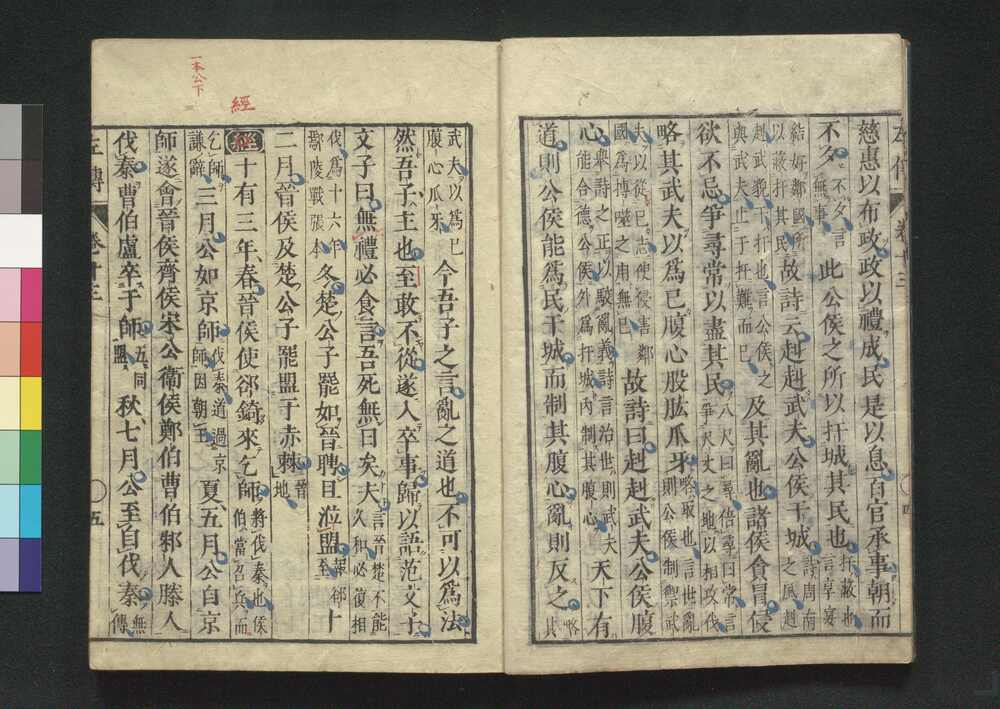 慈惠以布政政以禮成民是以息百官承事朝而
不夕不夕言無事此公侯之所以扞城其民也扞蔽也言享宴
結好鄰國所以蔽扞其民故詩云赳赳武夫公侯干城詩周南之風赳
赳武貌干扞也言公侯之與武夫止于扞難而已及其亂也諸侯貪冒侵
欲不忌爭尋常以盡其民八尺曰尋倍尋曰常言爭尺丈之地以相攻伐
略其武夫以爲已腹心股肱爪牙略取也言世亂則公侯制禦武
夫以從已志使侵害鄰國爲搏噬之用無已故詩曰赳赳武夫公侯腹
心舉詩之正以駁亂義詩言治世則武夫能合德公侯外爲扞城內制其腹心天下有
道則公侯能爲民干城而制其腹心亂則反之略其
一本公下
經
武夫以爲已腹心爪牙今吾子之言亂之道也不可以爲法
然吾子主也至敢不從遂入卒事歸以語范文子
文子曰無禮必食言吾死無日矣夫言晉楚不能久和必復相
伐爲十六年鄢陵戰張本冬楚公子罷如晉聘且涖盟報郤至十
二月晉侯及楚公子罷盟于赤棘晉地
經十有三年春晉侯使郤錡來乞師將伐秦也侯伯當召兵而
乞師謙辭三月公如京師伐秦道過京師因朝王夏五月公自京
師遂會晉侯齊侯宋公衞侯鄭伯曹伯邾人滕人
伐秦曹伯盧卒于師五同盟秋七月公至自伐秦無傳
左傳 卷十三 五